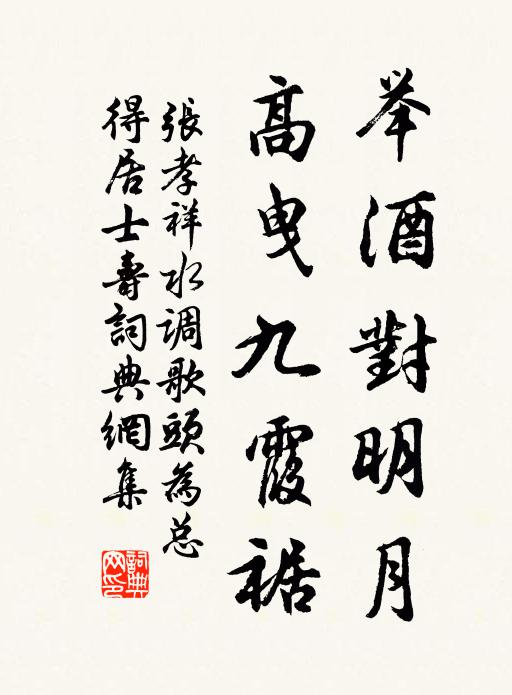 举酒對明月
高曳九霞裾
張孝祥水调歌頭為总
得居士壽詞典網集
詞典網印